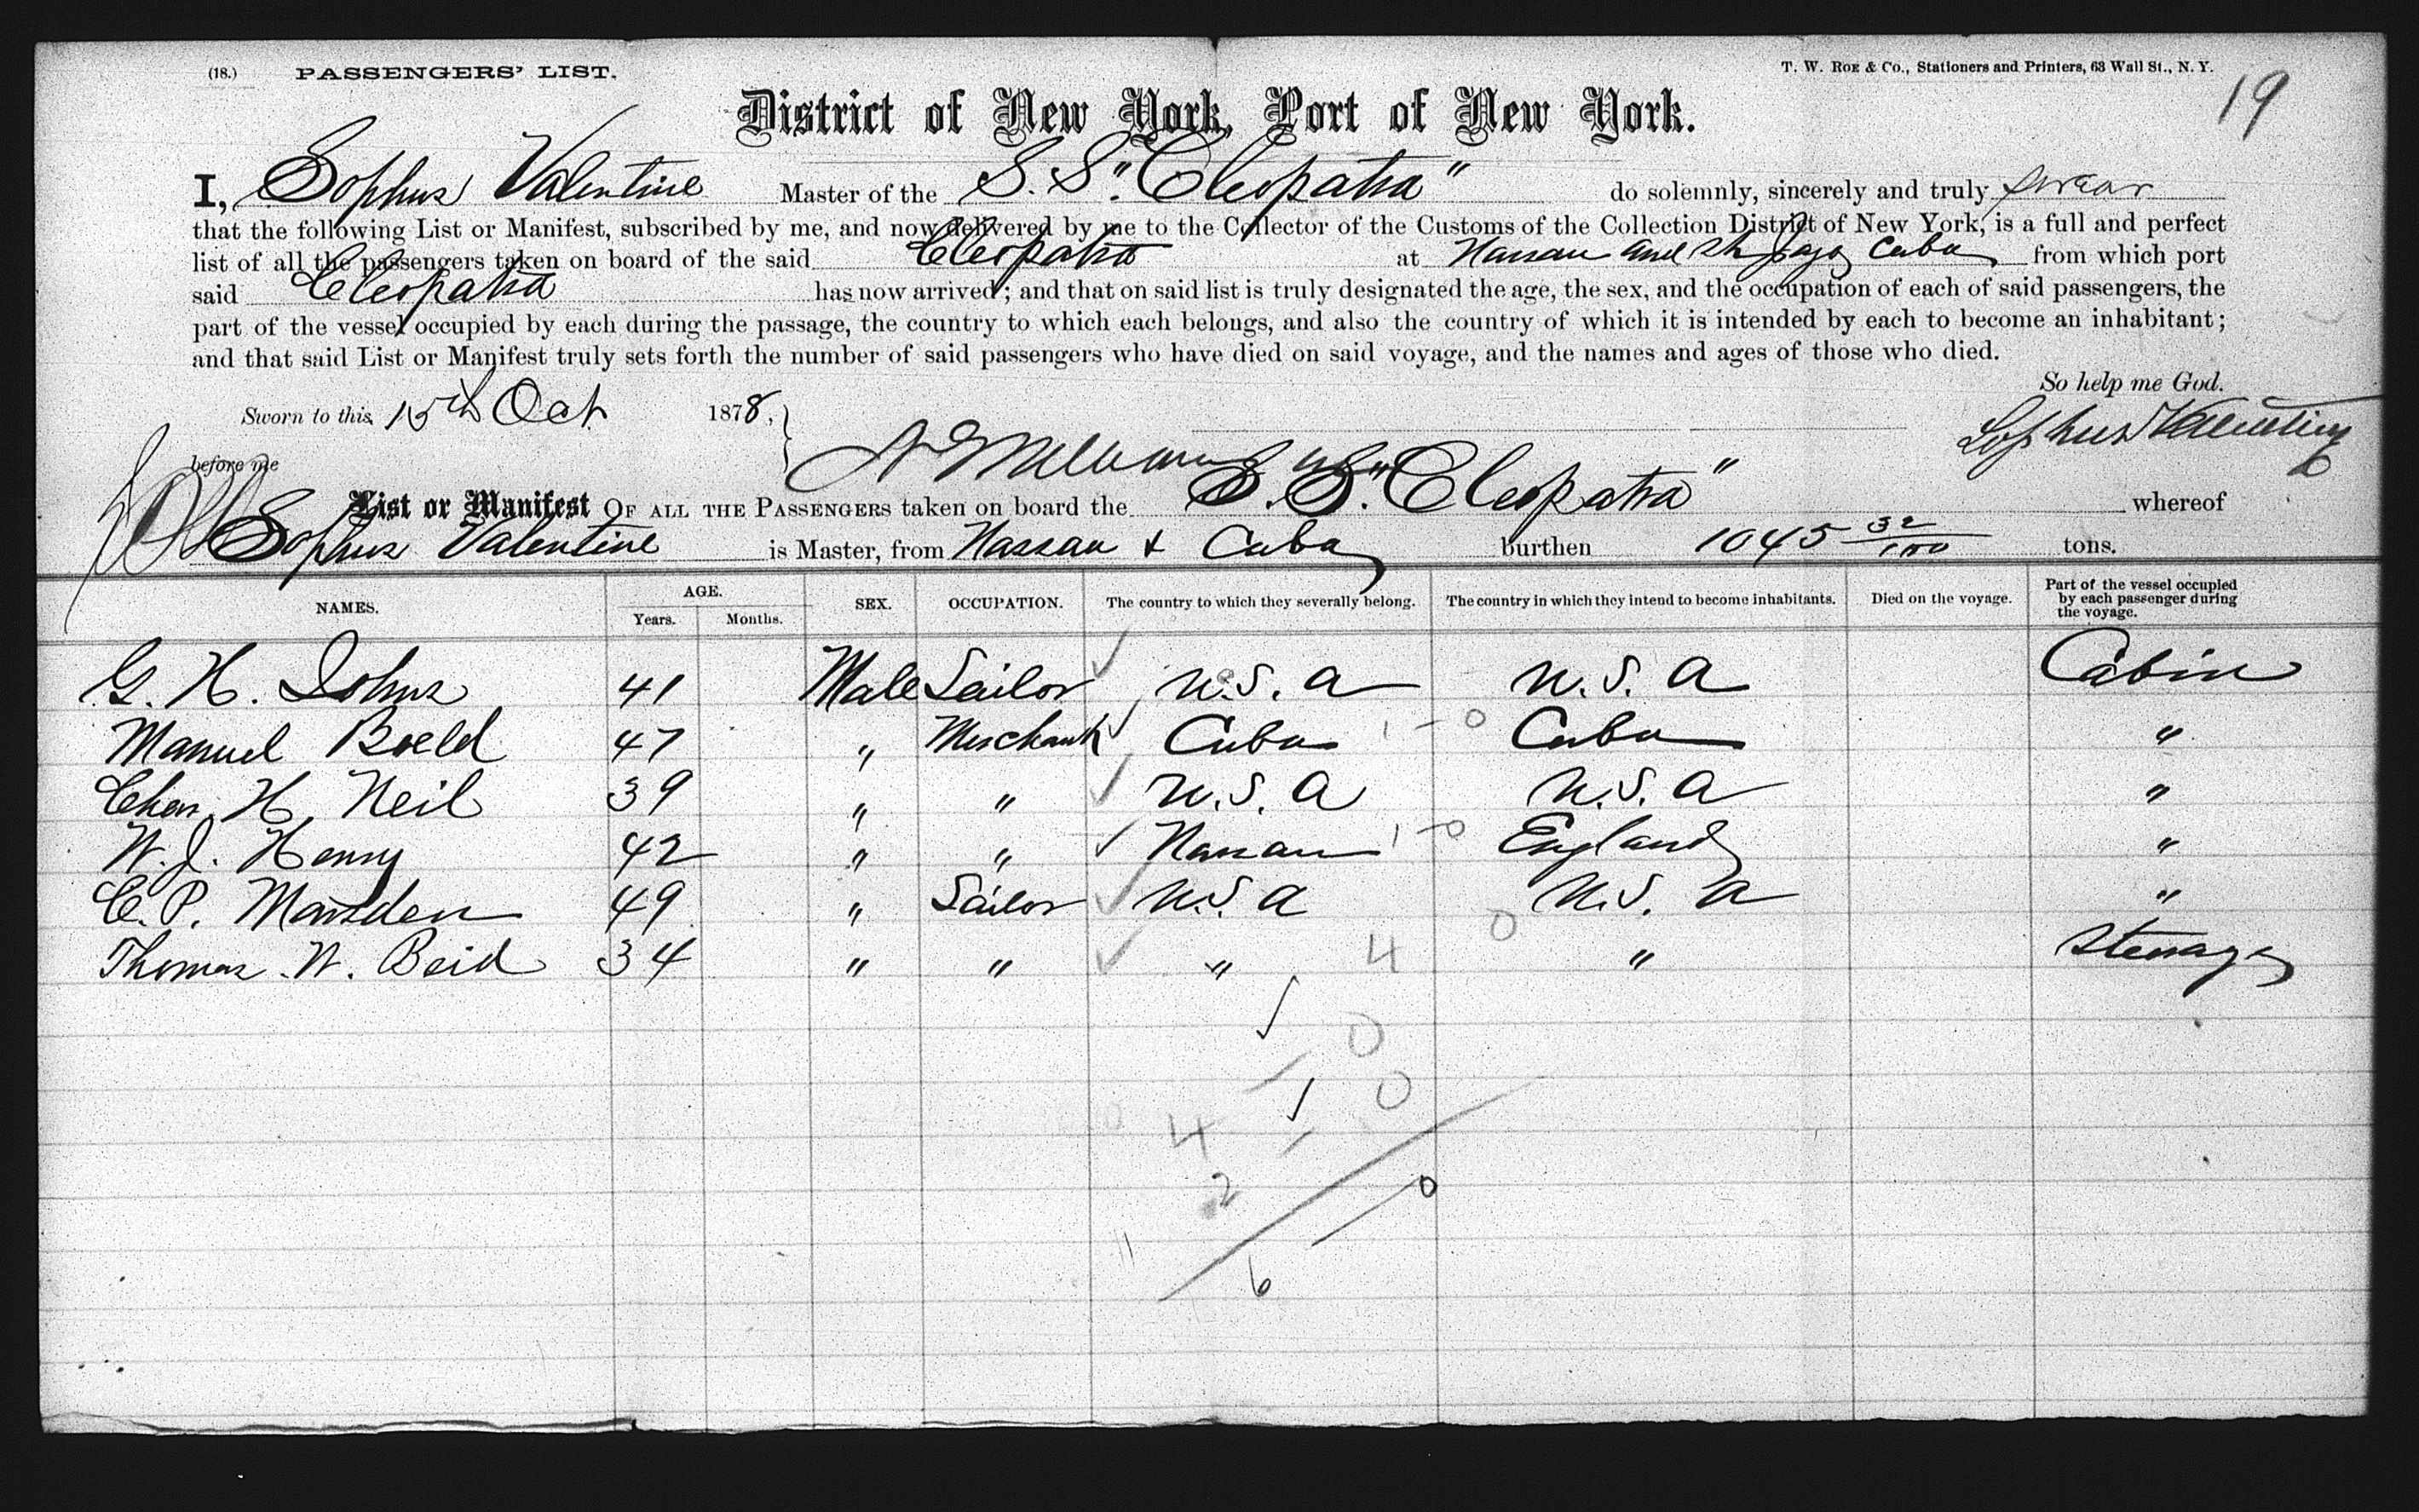 (18.) PASSENGERS' LIST. T. W. ROE & CO., Stationers and Printers, 63 Wall St., N. Y.
19
District of New York, Port of New York.
I, Sophus Valentine Master of the S. S. "Cleopatra" do solemnly, sincerely and truly swear
that the following List or Manifest, subscribed by me, and now delivered by me to the Collector of the Customs of the Collection District of New York, is a full and perfect
list of all the passengers taken on board of the said Cleopatra at Nassau and Cuba from which port
said Cleopatra has now arrived; and that on said list is truly designated the age, the sex, and the occupation of each of said passengers, the
part of the vessel occupied by each during the passage, the country to which each belongs, and also the country of which it is intended by each to become an inhabitant;
and that said List or Manifest truly sets forth the number of said passengers who have died on said voyage, and the names and ages of those who died.
So help me God.
Sworn to this 15th Oct 1878,
Sophus Valentine
before me
List or Manifest OF ALL THE PASSENGERS taken on board the S. S. "Cleopatra" whereof
Sophus Valentine is Master, from Nassau & Cuba burthen 1045 32/100 tons.
NAMES. AGE. Years. Months. SEX. OCCUPATION. The country to which they severally belong. The country in which they intend to become inhabitants. Died on the voyage. Part of the vessel occupied by each passenger during the voyage.
G. H. Johns 41 Male Sailor U.S.A U.S.A Cabin
Manuel 47 " Merchant Cuba 1-0 Cuba "
Chas. H. Neil 39 " " U.S.A U.S.A "
W. J. Henry 42 " " Nassau 1-0 England "
C. P. Marsden 49 " Sailor U.S.A U.S.A "
Thomas W. Beid 34 " " " 4 0 " Steerage
0
0
4
2 0
6